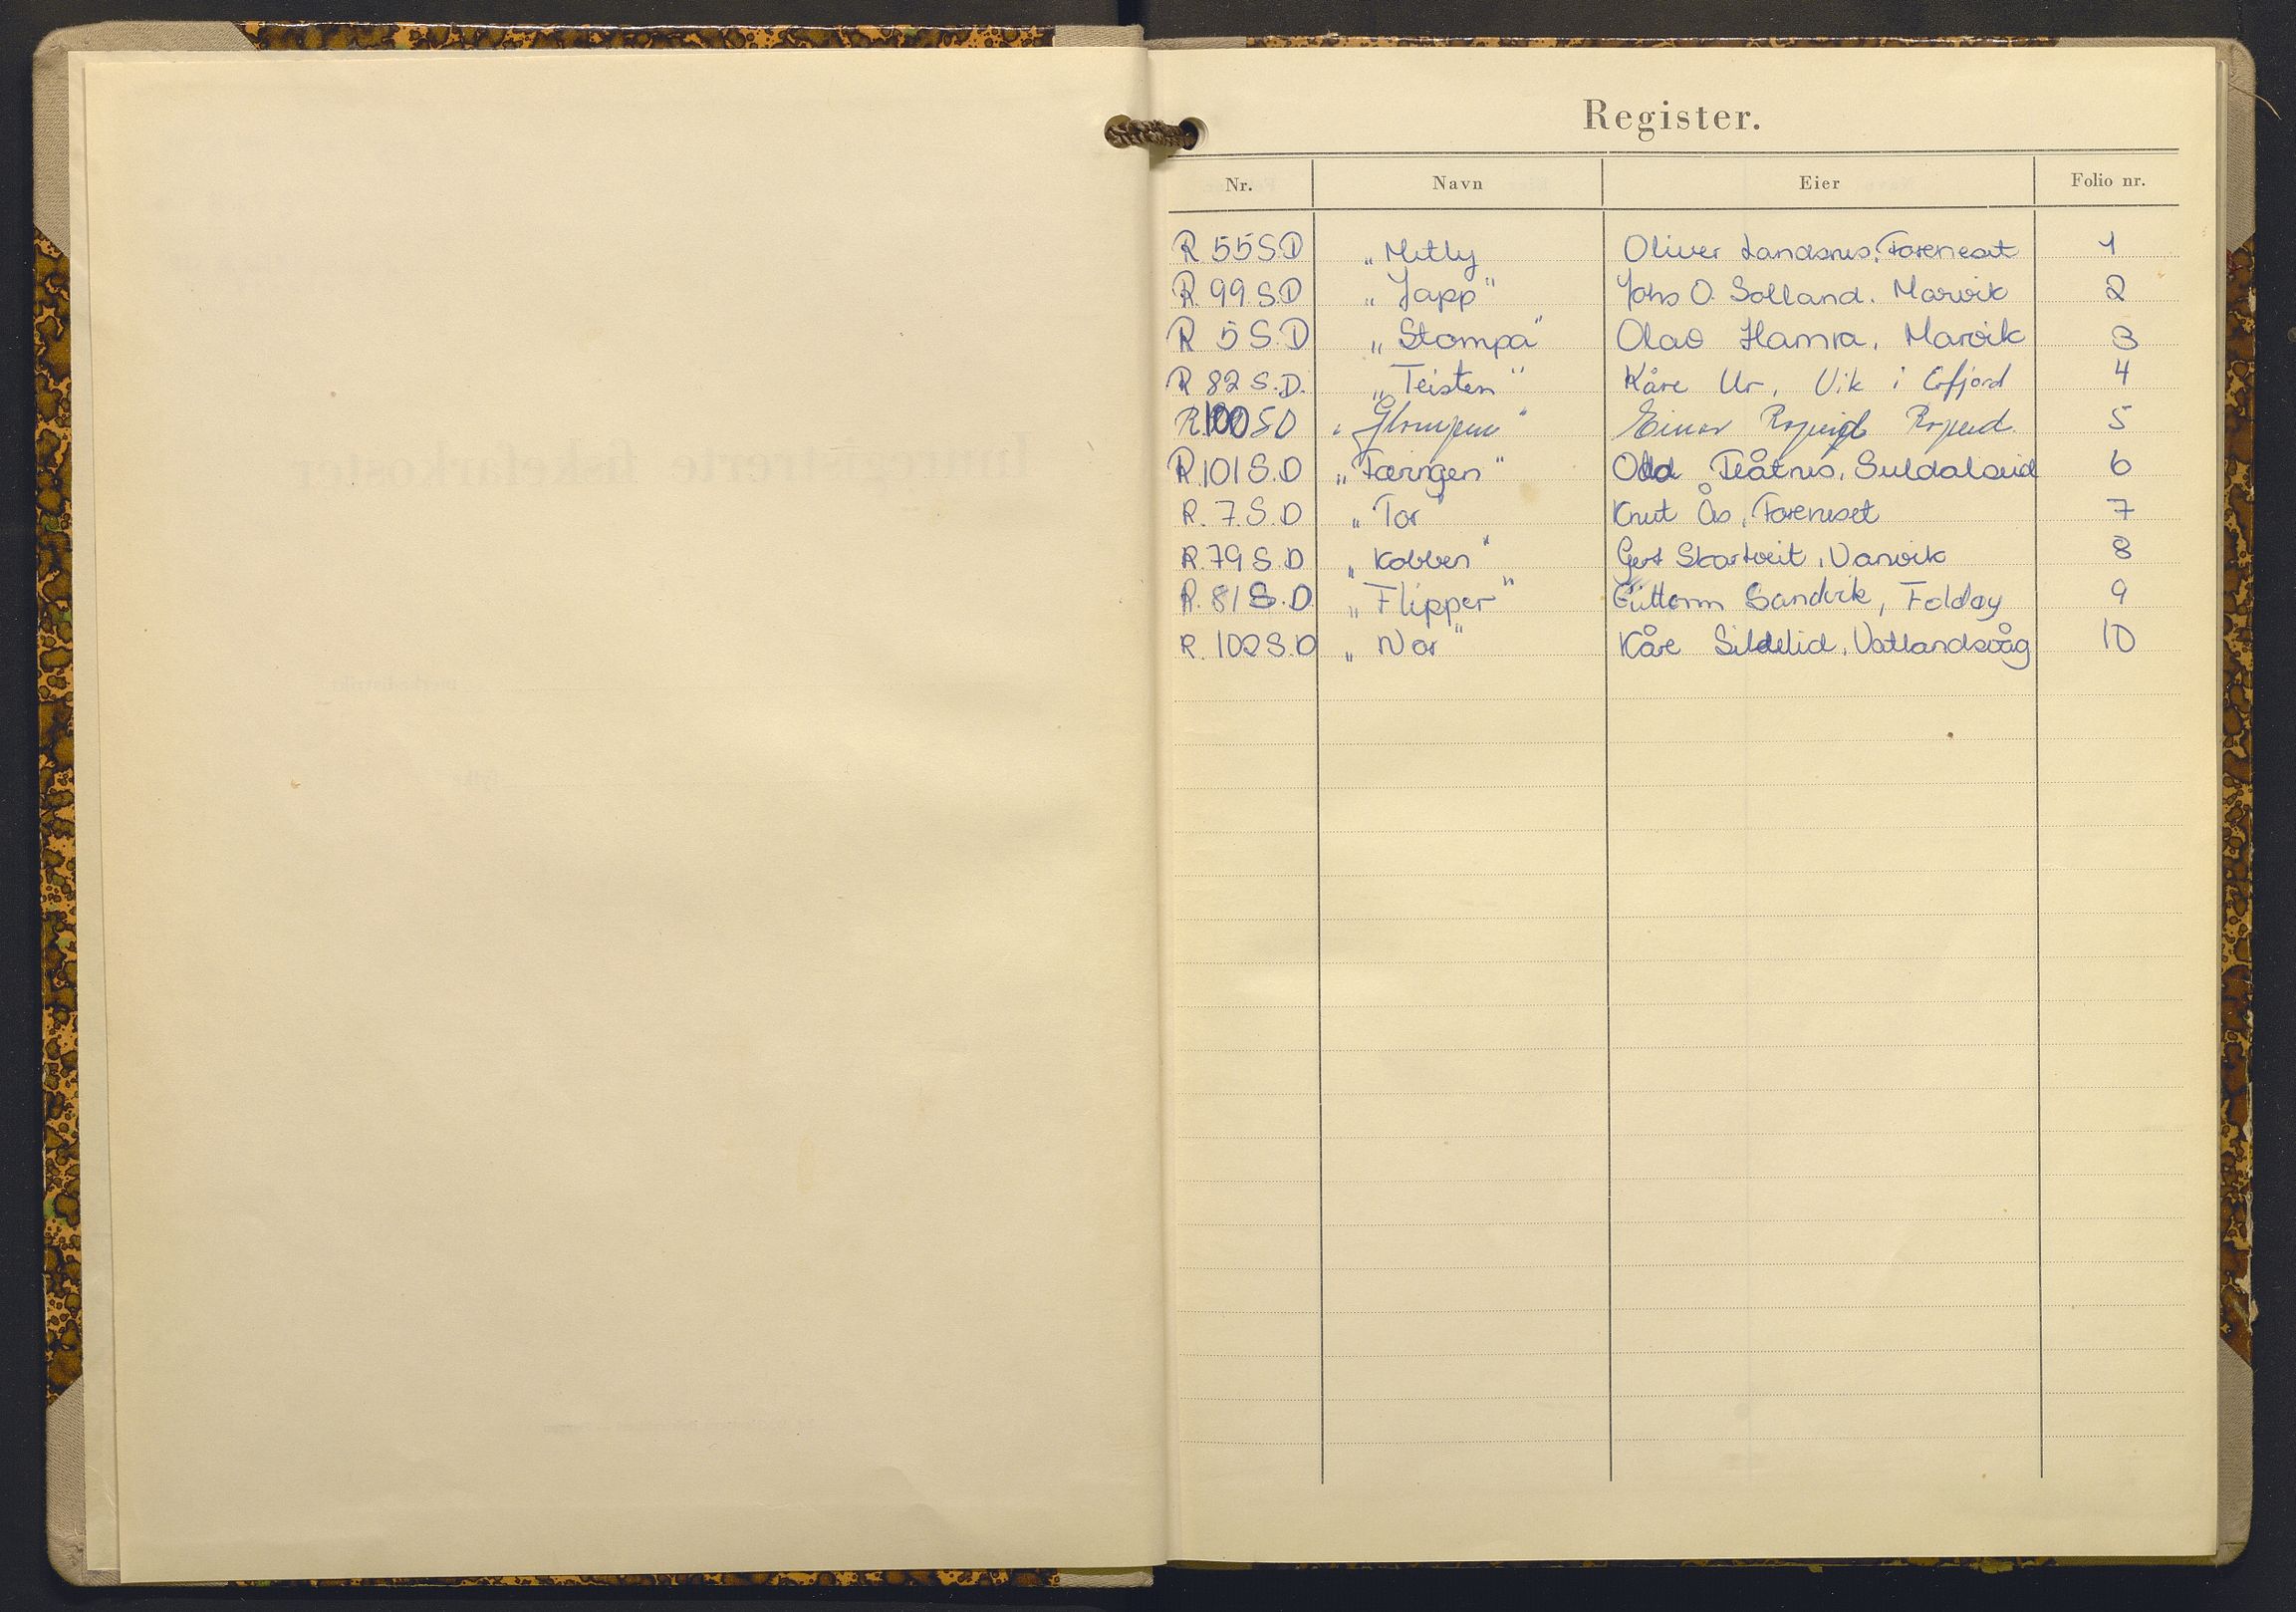 Register.
Nr. Navn Eier Folio nr.
R 55 S D „Metly Oliver Landsnes, Foreneset 1
R. 99. S. D „Japp" Johs O. Solland. Marvik 2
R 5 S. D „Stompa" Olav Hamra, Marvik 3
R 82 S. D. „Teisten" Kåre Ur, Vik i Erfjord 4
R. 100 S D Einar 5
R. 101 S. D „Færingen" Odd Flåtnes, Suldalseid 6
R. 7. S. D „Tor" Knut Ås, Foreneset 7
R. 79 S. D „Kobben" Gert Skartveit, Vanvik 8
R. 81 S. D. „Flipper" Guttorm Sandvik, Foldøy 9
R. 102 S. D „Nor" Kåre Sildelid, Vatlandsvåg 10